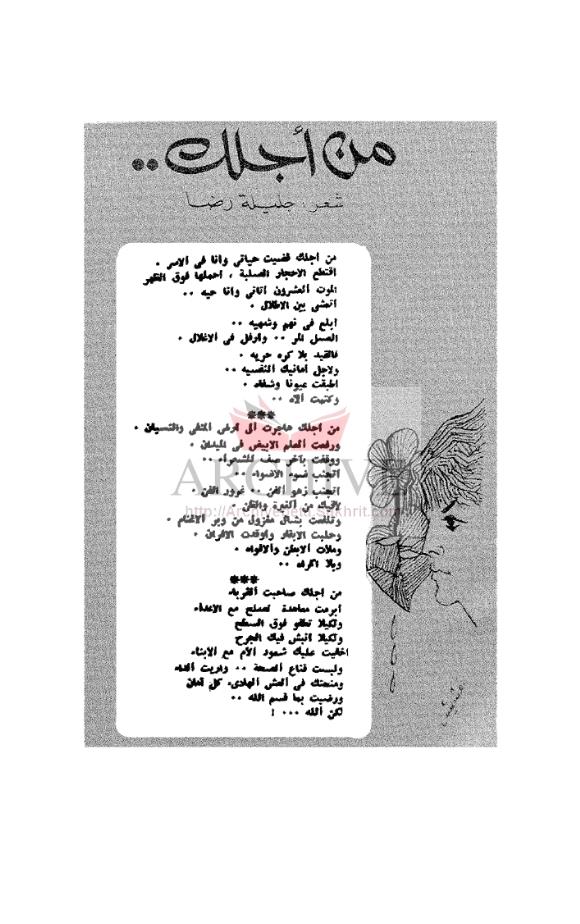 من أجلك ..
شعر : جليلة رضا
من اجلك قضيت حياتى وأنا فى الاسر .
اقتطع الاحجار الصلبة ، احملها فوق الظهر
الموت العشرون اتانى وانا حيه ..
اتمشى بين الاطلال .
ابلع فى نهم وشهيه ..
العسل المر .. وارفل فى الاغلال .
فالقيد بلا كره حريه .
ولاجل امانيك النفسيه ..
اطبقت عيونا وشفاه .
وكتمت الآه ..
***
من اجلك هاجرت الى ارض المنفى والنسيان .
ورفعت العلم الابيض فى الميدان
ووقفت بآخر صف للشعراء .
اتجنب ضوء الاضواء .
اتجنب زهو الفن .. غرور الفن .
من الغيرة والظن
وتلفعت بشال مغزول من وبر الاغنام .
وحلبت الابقار واوقدت الافران .
وملأت الابطن والافواه .
وبلا اكراه ..
***
من اجلك صاحبت الغرباء
ابرمت معاهدة مع الاعداء
ولكيلا تطفو فوق السطح
ولكيلا انبش فيك الجرح
اخفيت عليك شعور الأم مع الابناء
ولبست قناع الصحة .. واريت الداء
ومنحتك فى العش الهادىء كل امان
ورضيت بما قسم الله ..
لكن الله ... !
ARCHIVE
http://Archivebeta.Sakhrit.com